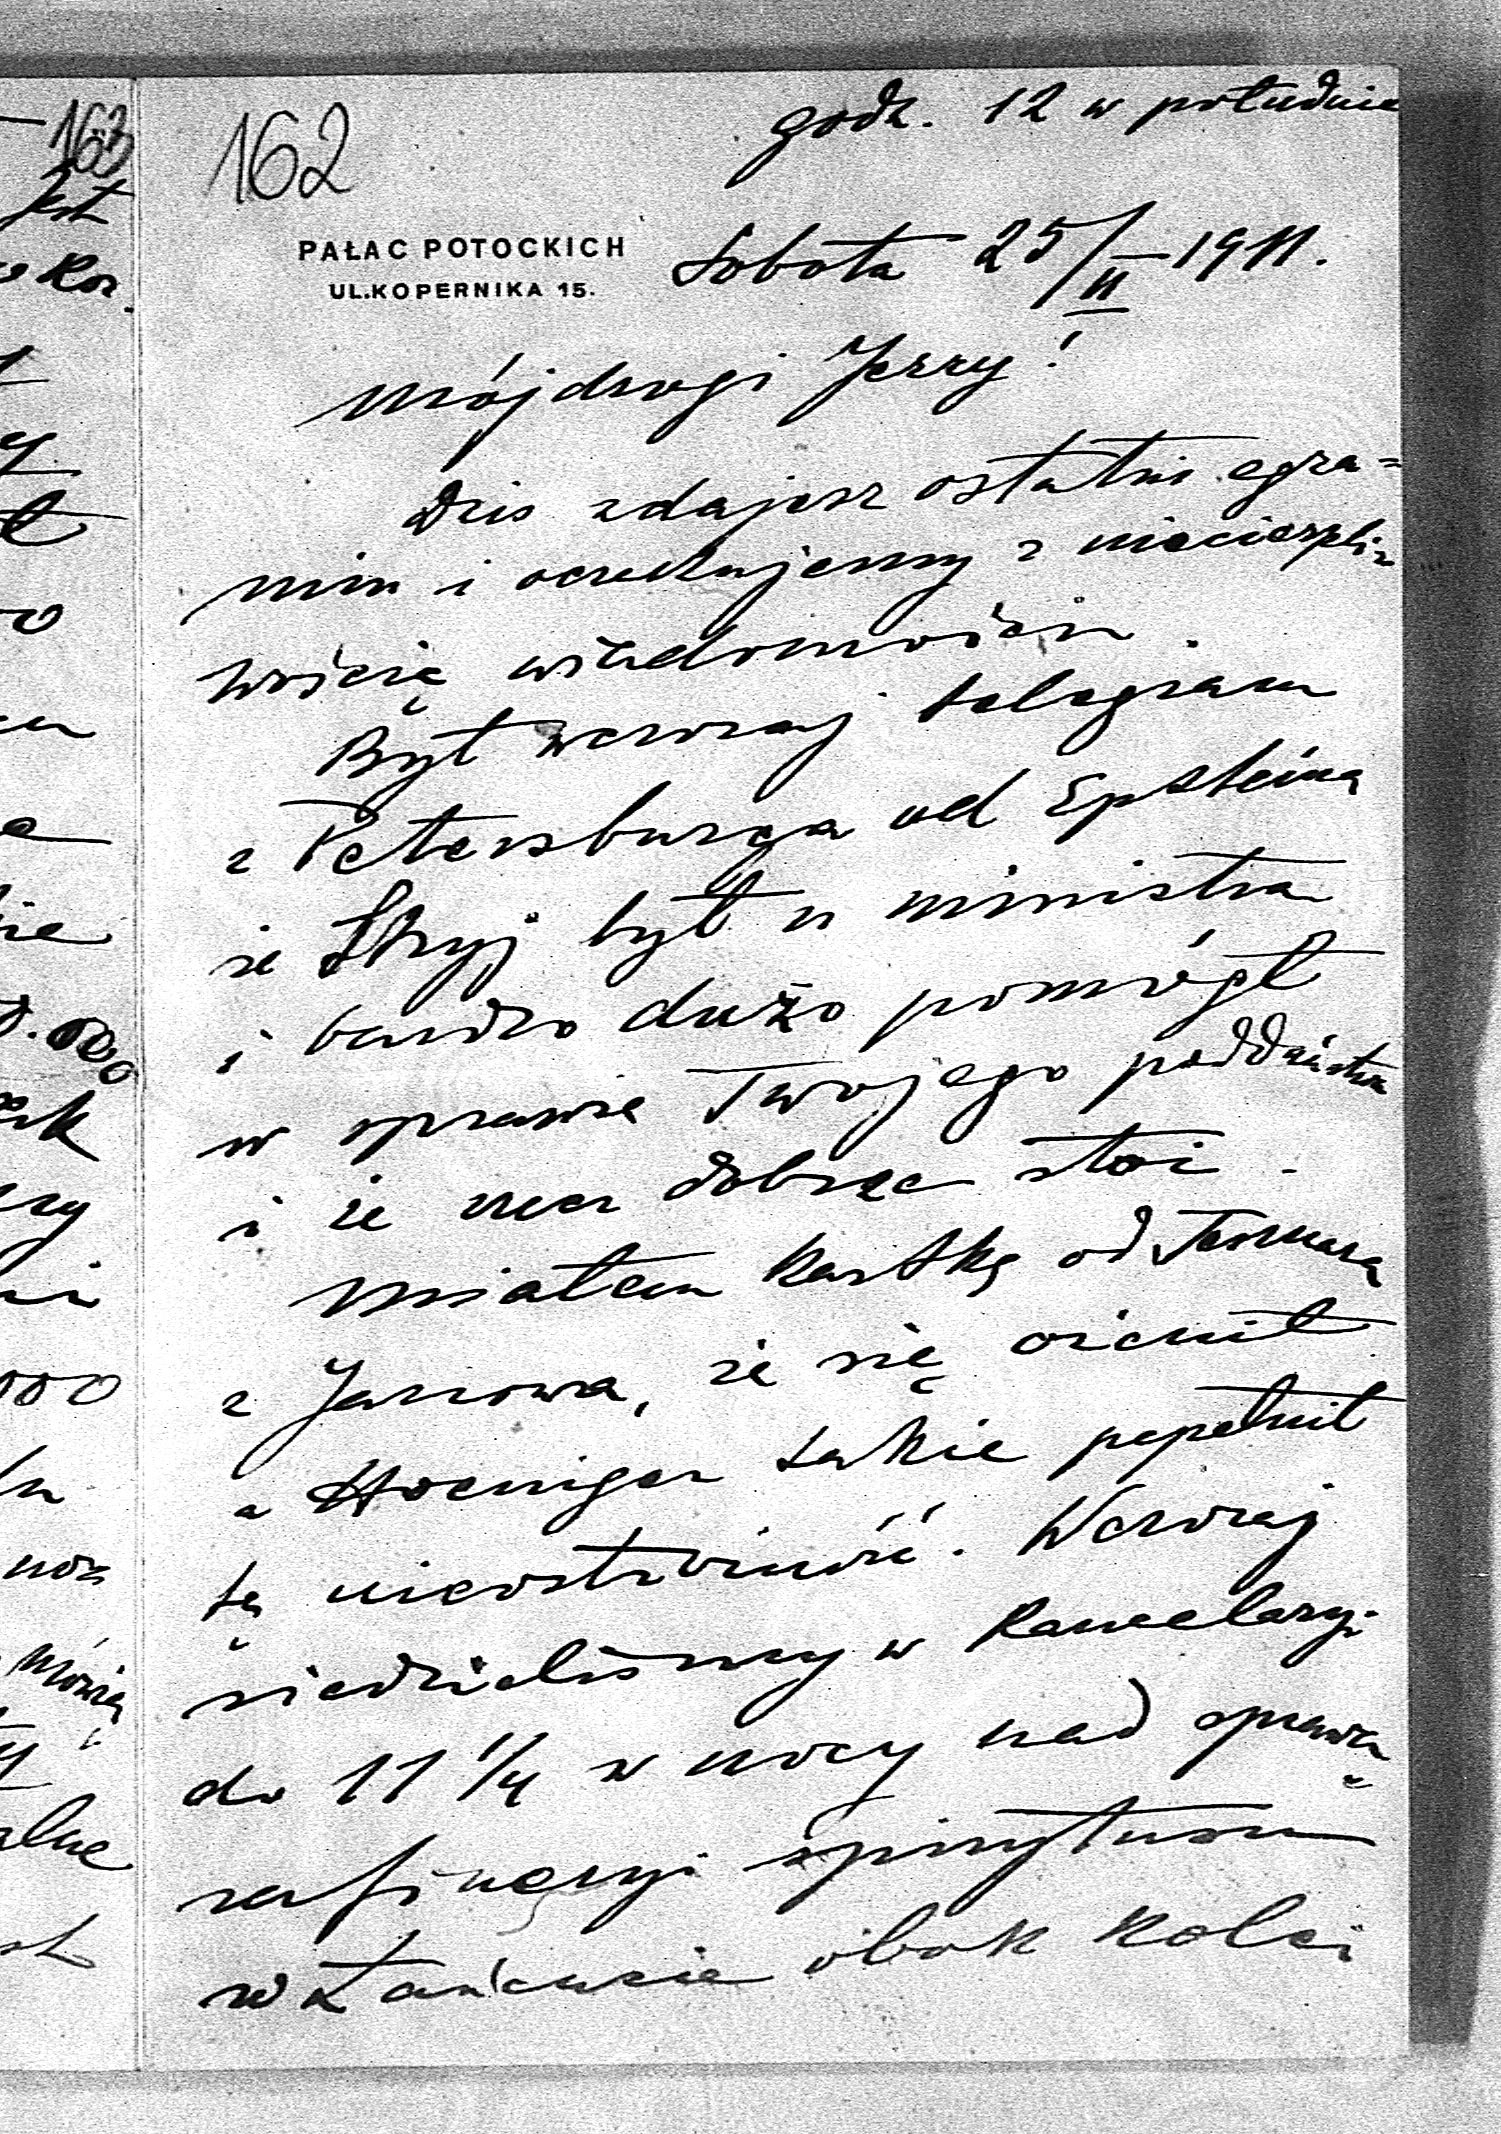 163
162
godz. 12 w południe
PAŁAC POTOCKICH
UL.KOPERNIKA 15.
Sobota 25/II 1911.
Mój drogi Jerzy!
Dziś zdajesz ostatni egza=
min i oczekujemy z niecierpli=
wością wiadomości.
Był wczoraj telegram
z Petersburga od Epsteina
że Stryj był u ministra
i bardzo dużo pomógł
w sprawie Twojego poddaństwa
i że rzecz dobrze stoi.
Miałem kartkę od
z Janowa, że się ożenił
a Hoeniger także popełnił
tę nieostrożność. Wczoraj
siedzieliśmy w Kancelaryi
do 11 1/4 w nocy nad sprawą
rafineryi spirytusu
w Łańcucie obok Kolei